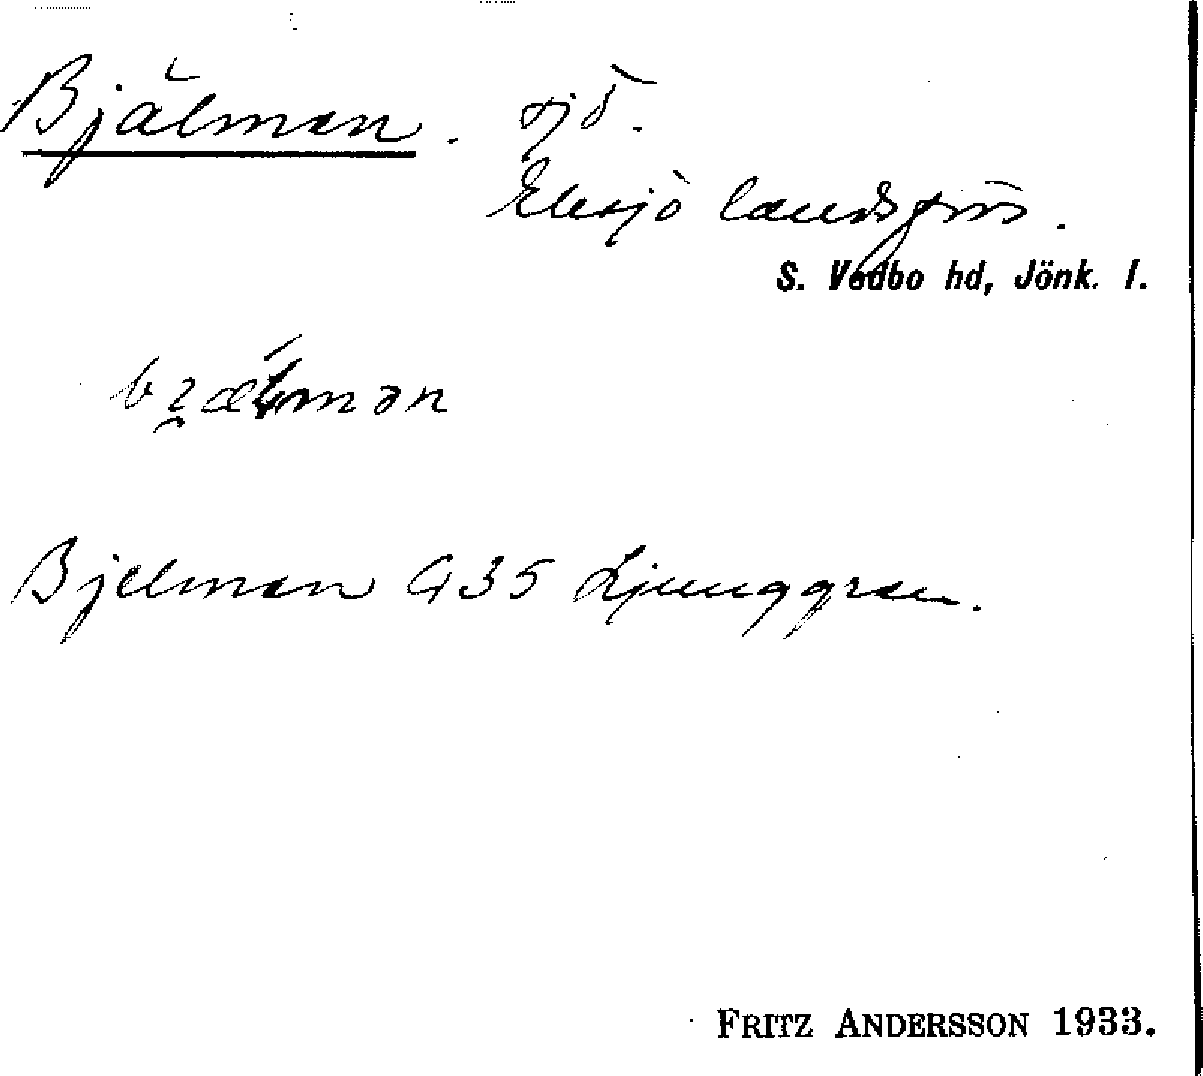 Bjälmen. sjö.
Eksjö landsförs.
S. Vedbo hd, Jönk. l.
Bjelmen G35 Ljunggren.
FRITZ ANDERSSON 1933.